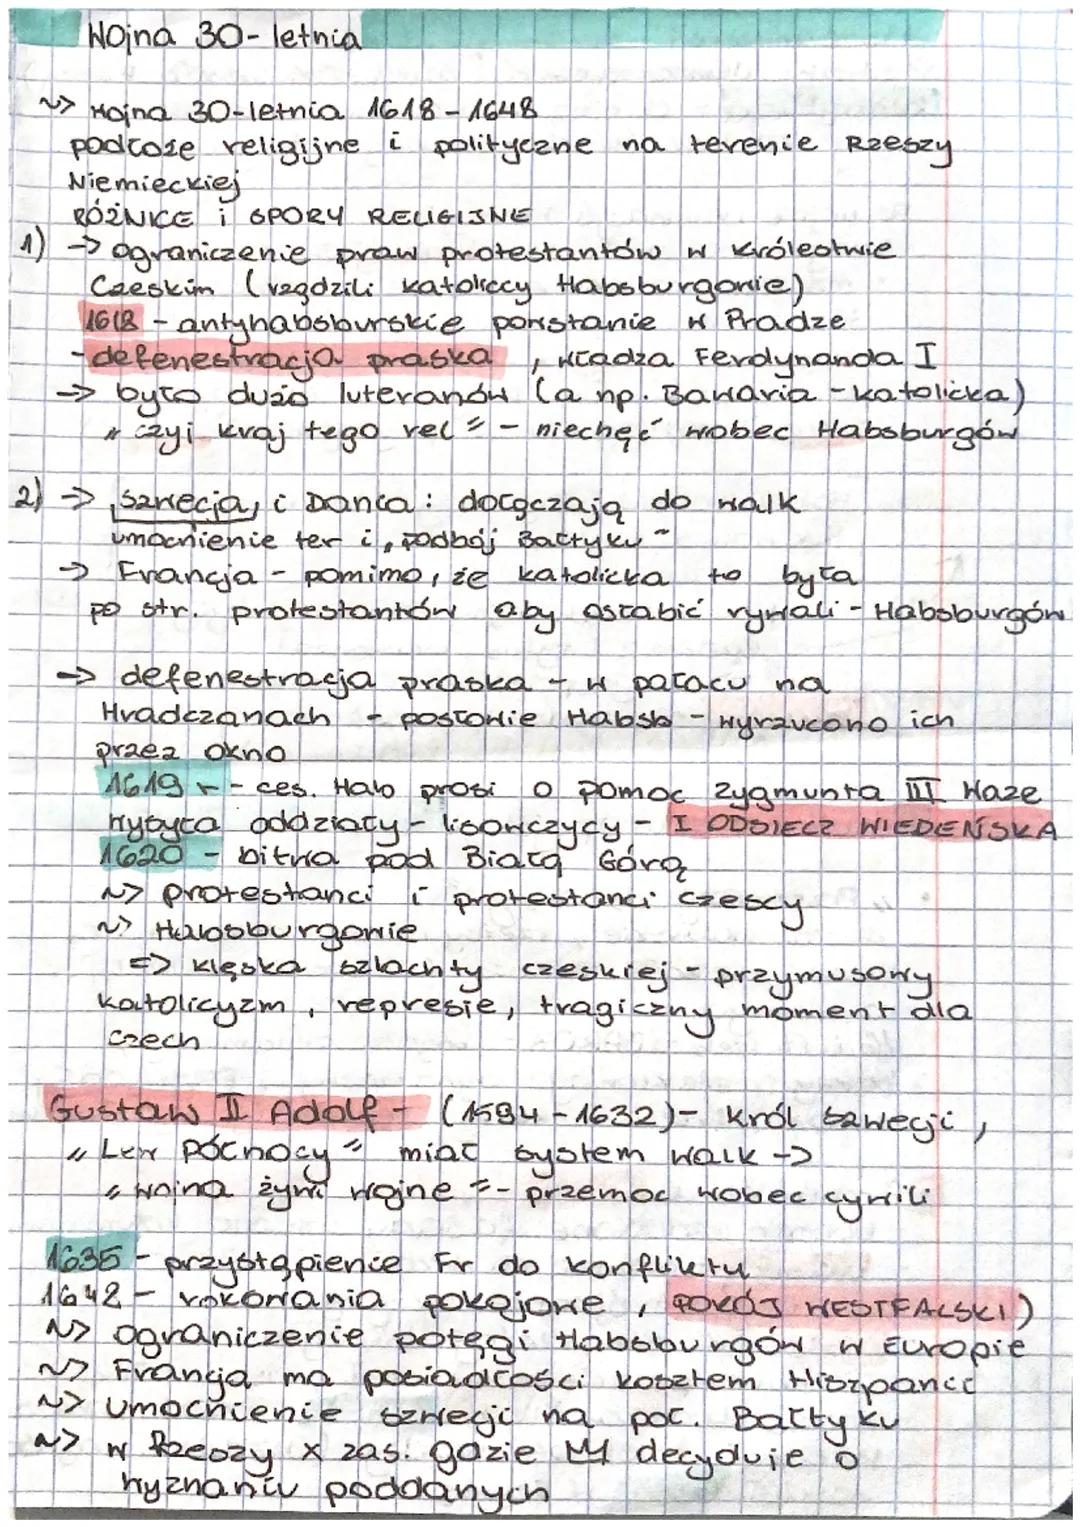 Wojna 30-letnia
~> Wojna 30-letnia 1618-1648
podłoże religijne i polityczne na terenie Rzeszy
Niemieckiej
RÓŻNICE i SPORY RELIGIJNE
1) -> ograniczenie praw protestantów w królestwie
Czeskim (rządzili katoliccy Habsburgowie)
1618 - antyhabsburskie powstanie w Pradze
- defenestracja praska , władza Ferdynanda I
-> było dużo luteranów (a np. Bawaria - katolicka)
"czyj kraj tego rel" - niechęć wobec Habsburgów
2) -> Szwecja, i Dania: dołączają do walk
umocnienie ter i "podbój Bałtyku"
-> Francja - pomimo, że katolicka to była
po str. protestantów aby osłabić rywali - Habsburgów
-> defenestracja praska - w pałacu na
Hradczanach - posłowie Habsb - wyrzucono ich
przez okno
1619 r - ces. Hab prosi o pomoc Zygmunta III Wazę
wysyła oddziały - lisowczycy - I ODSIECZ WIEDEŃSKA
1620 - bitwa pod Białą Górą
~> protestanci i protestanci czescy
~> Habsburgowie
=> klęska szlachty czeskiej - przymusowy
katolicyzm, represje, tragiczny moment dla
Czech
Gustaw II Adolf - (1594-1632) - król Szwecji,
"Lew Północy" miał system walk ->
"wojna żywi wojnę" - przemoc wobec cywili
1635 - przystąpienie Fr do konfliktu
1642 - rokowania pokojowe , POKÓJ WESTFALSKI)
~> ograniczenie potęgi Habsburgów w Europie
~> Francja ma posiadłości kosztem Hiszpanii
~> umocnienie Szwecji na poł. Bałtyku
~> w Rzeszy x zas. gdzie decyduje o
wyznaniu poddanych